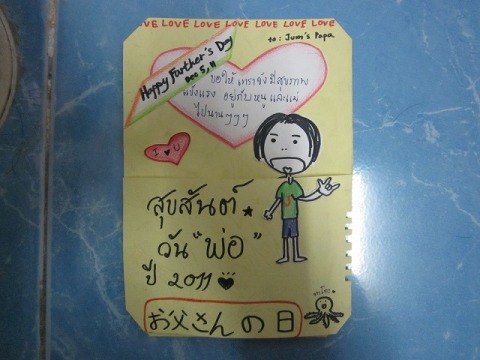 VE LOVE LOVE LOVE LOVE LOVE LOVE LOVE
to: Jum's Papa
Happy Farther's Day
Dec 5, 11
ขอให้ เทราจัง มีสุขภาพ
แข็งแรง อยู่กับหนู และแม่
ไปนานๆๆๆ
I ♥ U
สุขสันต์
วัน "พ่อ"
ปี 2011
お父さんの日